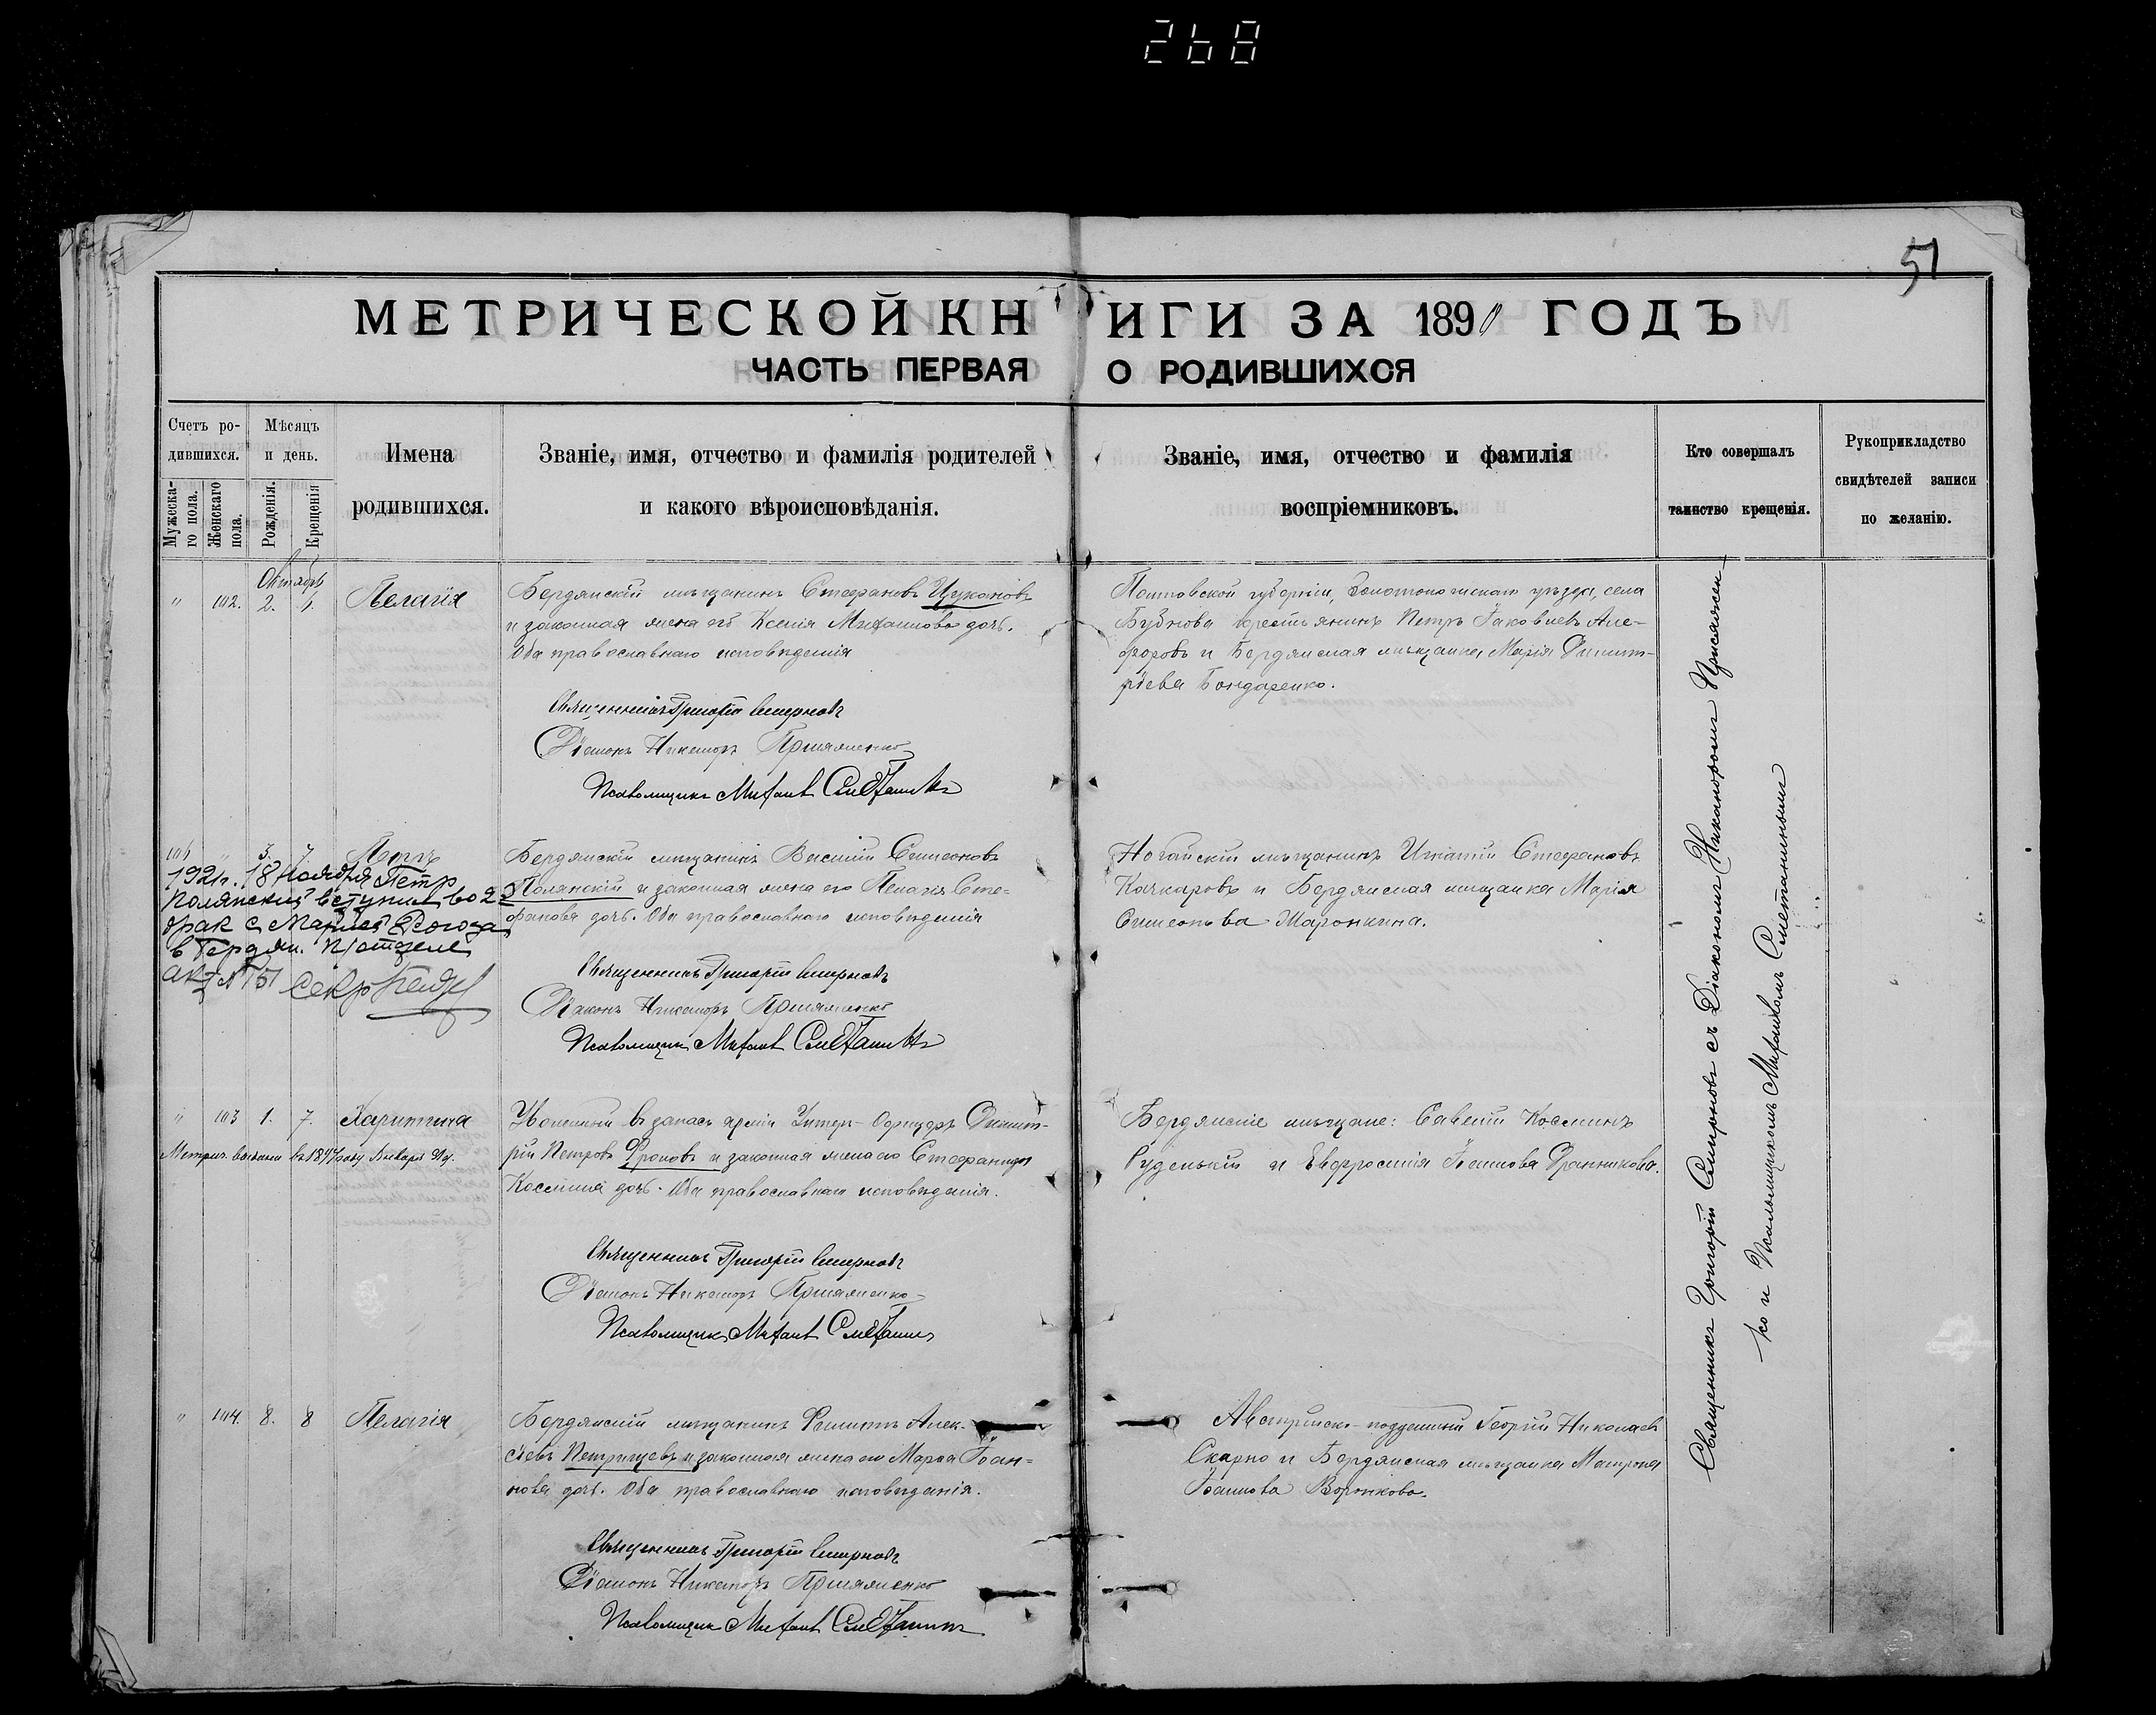 268
51
МЕТРИЧЕСКОЙ КНИГИ ЗА 1890 ГОДЪ
ЧАСТЬ ПЕРВАЯ О РОДИВШИХСЯ
Счетъ ро-
дившихся.
Мужеска-
го пола.
Женскаго
пола.
Мѣсяцъ
и день.
Рожденія.
Крещенія
Имена
родившихся.
Званіе, имя, отчество и фамилія родителей
и какого вѣроисповѣданія.
Званіе, имя, отчество и фамилія
воспріемниковъ.
Кто совершалъ
таинство крещенія.
Рукоприкладство
свидѣтелей записи
по желанію.
Октябрь
" 102. 2. Пелагія
Бердянскій мѣщанинъ Стефановъ Цукановъ
и законная жена его Ксенія Михаилова дочь.
Оба православнаго исповѣданія
Священникъ Григорій Смирновъ
Діаконъ Никаноръ Присяженко
Псаломщикъ Михаилъ Сметанинъ
Полтавской губерніи, Золотоношскаго уѣзда, села
Бубнова крестьянинъ Петръ Іаковлевъ Але-
форовъ и Бердянская мѣщанка Марія Димит-
ріева Бондаренко.
3. 7 Петръ
1921г. 18 Ноября Петр
Полянский вступил во 2й
брак с Марией Рогоза
в Бердян. П/отделе
акт № 151
Бердянскій мѣщанинъ Василій Симеоновъ
Полянскій и законная жена его Пелагія Сте-
фанова дочь. Оба православнаго исповѣданія
Священникъ Григорій Смирновъ
Діаконъ Никаноръ Присяженко
Псаломщикъ Михаилъ Сметанинъ
Ногайскій мѣщанинъ Игнатій Стефановъ
Качкаровъ и Бердянская мѣщанка Марія
Симеонова Маронкина.
" 103 1. 7. Харитина
Метрич. выпись въ 1897 году Января
Уволенный въ запасъ арміи Унтеръ-Офицеръ Димит-
рій Петровъ Фроловъ и законная жена его Стефанида
Космина дочь. Оба православнаго исповѣданія.
Священникъ Григорій Смирновъ
Діаконъ Никаноръ Присяженко
Псаломщикъ Михаилъ Сметанинъ
Бердянскіе мѣщане: Савелій Косминъ
Руденькій и Евфросинія Іоаннова Дранникова.
" 104. 8. 8 Пелагія
Бердянскій мѣщанинъ Филиппъ Алек-
сіевъ Петрищевъ и законная жена его Марѳа Іоан-
нова дочь. Оба православнаго исповѣданія.
Священникъ Григорій Смирновъ
Діаконъ Никаноръ Присяженко
Псаломщикъ Михаилъ Сметанинъ
Австрійско-подданный Георгій Николаевъ
Скарно и Бердянская мѣщанка Матрона
Іоаннова Воронкова.
Священникъ Григорій Смирновъ съ Діакономъ Никаноромъ Присяжен-
ко и Псаломщикомъ Михаиломъ Сметанинымъ